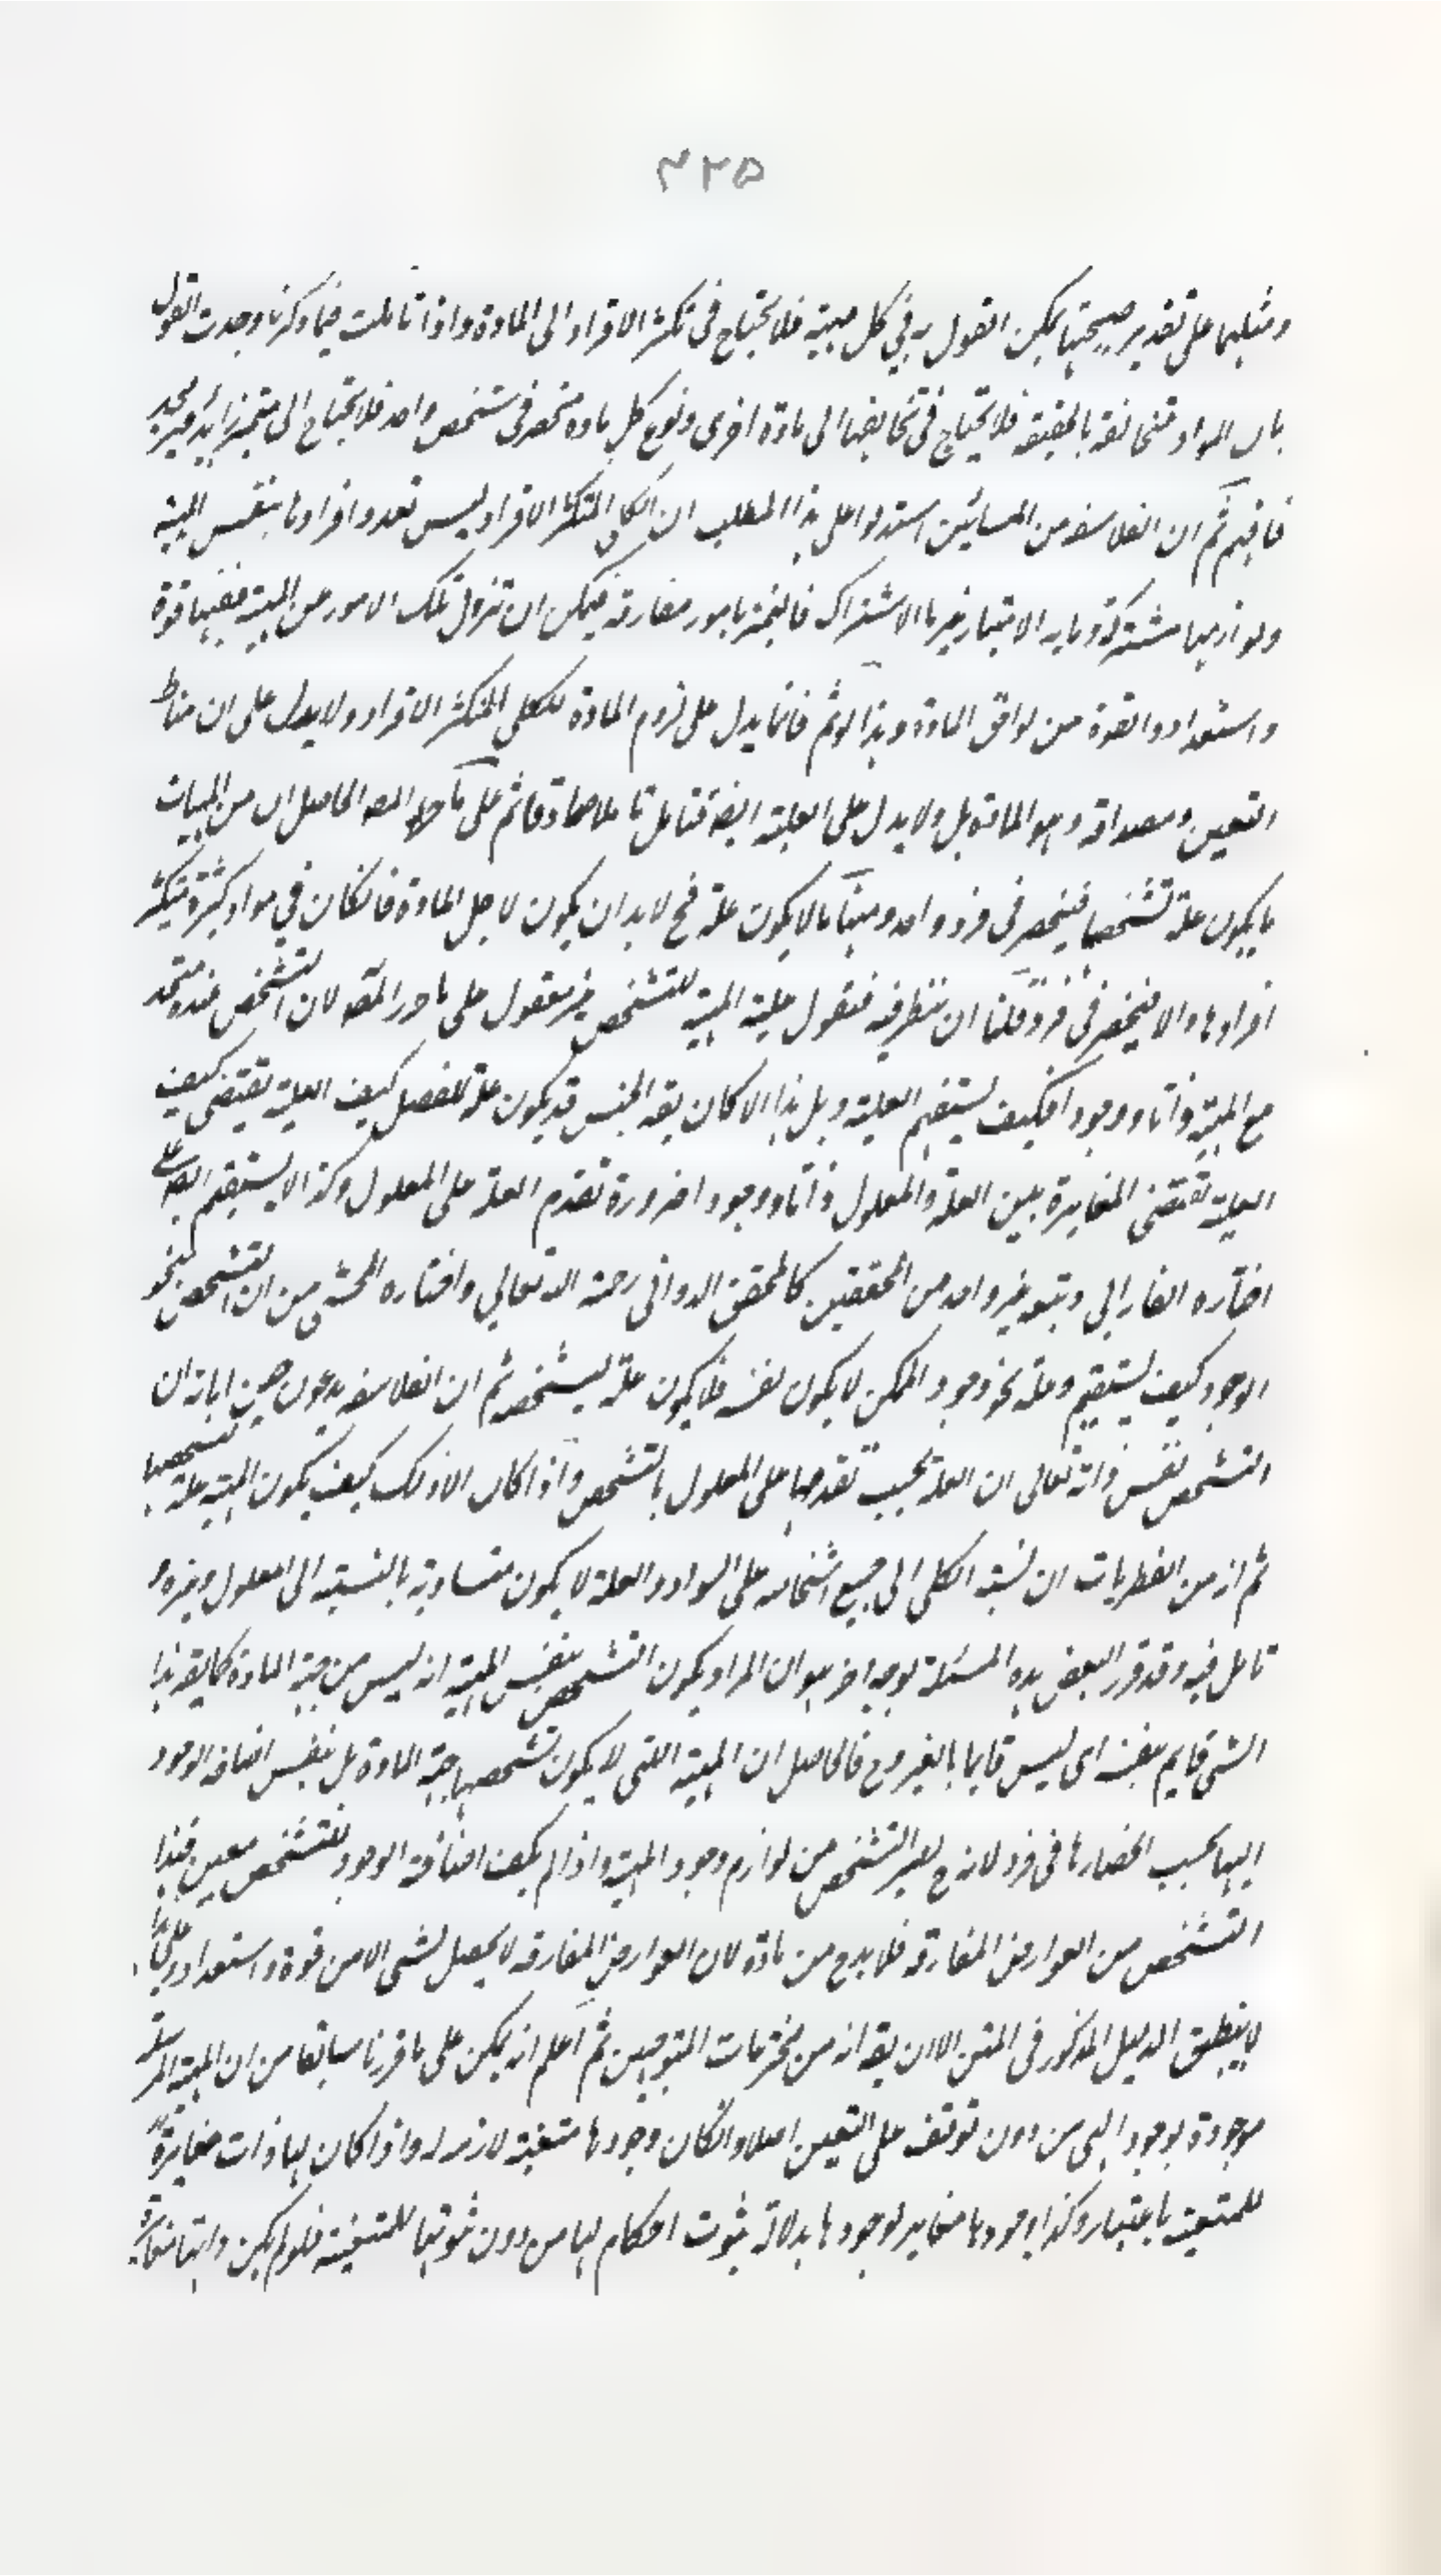 ٣٢٥
ومثلها على تقدير صحتها يمكن القول به في كل مهية فلا يحتاج في تكثر الافراد الى المادة واذا تاملت فيما ذكرنا وجدت القول
بان المواد متخالفة بالحقيقة فلا يحتاج في تخالفها الى مادة اخرى ونوع كل مادة منحصر في شخص واحد فلا يحتاج الى متميز زايد غير مجد
فافهم ثم ان الفلاسفة من المسائين استدلوا على هذا المطلب ان الكلي المتكثر الافراد ليس تعدد افرادها بنفس المهية
ولوازمها مشتركة وما به الامتياز غير ما الاشتراك فالتميز بامور مفارقة فيمكن ان تزول تلك الامور عن المهية ففيها قوة
واستعداد والقوة من لواحق المادة وهذا لو تم فانما يدل على لزوم المادة للكلي المتكثر الافراد ولا يدل على ان مناط
التعين ومصداقه وهو المادة بل ولا يدل على العلية ايضا فتامل تاملا صادقا ثم على الحاصل ان من المهيات
ما يكون علة تشخصها فينحصر في فرد واحد ومنها ما لا يكون علة فح لا بد ان يكون لاجل المادة فان كان في مواد كثيرة يتكثر
افرادها والا فينحصر في فرد قلنا ان ننظر فيه فنقول علية المهية للتشخص غير معقول على ما حرر المص لان التشخص عنده متحد
مع المهية ذاتا ووجودا فكيف يستقيم العلية وهل هذا الا كان يقه الجنس قد يكون علة للفصل كيف العلية تقتضي كيف
العلية تقتضي المغايرة بين العلة والمعلول ذاتا ووجودا ضرورة تقدم العلة على المعلول وكذا لا يستقيم ايضا على
اختاره الفارابي وتبعه غير واحد من المحققين كالمحقق الدواني رحمة الله تعالى واختاره المحشي من ان التشخص نحو
الوجود كيف يستقيم وعلة نحو وجود الممكن لا يكون نفسه فلا يكون علة لتشخصه ثم ان الفلاسفة يدعون حين ابانة ان
التشخص نفس ذاته تعالى ان العلة يجب تقدمها على المعلول بالتشخص واذا كان الا كذلك كيف يكون المهية علة تشخصها
ثم انه من الفطريات ان نسبة الكلى الى جميع اشخاصه على السواد والعلة لا يكون متساوية بالنسبة الى المعلول وغيره
تامل فيه وقد قرر البعض هذه المسئلة بوجه اخر هو ان المراد يكون التشخص بنفس المهية انه ليس من جهة المادة كما يقه هذا
الشي قايم بنفسه اى ليس قايما بالغير وح فالحاصل ان المهية التي لا يكون تشخصها جهة المادة بل بنفس اضافة الوجود
اليها يجب انحصارها في فرد لانه ح يصير التشخص من لوازم وجود المهية واذا لم يكف اضافة الوجود للتشخص معين فهذا
التشخص من العوارض المفارقة فلا بد ح من مادة لان العوارض المفارقة لا يحصل لشي الا من قوة واستعداد وعلى هذا
لا ينطبق الدليل المذكور في المتن الا ان يقه انه من مخترعات المتوهمين ثم اعلم انه يمكن على ما قررنا سابقا من ان المهية المرسلة
موجودة بوجود الهي من دون توقف على التعين اصلا وان كان وجودها متعينة لازمة له واذا كان لها ذات مغايرة
للمتعينة باعتبار وكذا وجودها مغاير لوجودها بدلالة ثبوت احكام لها من دون ثبوتها للمتعينة فلو لم يكن ذاتها